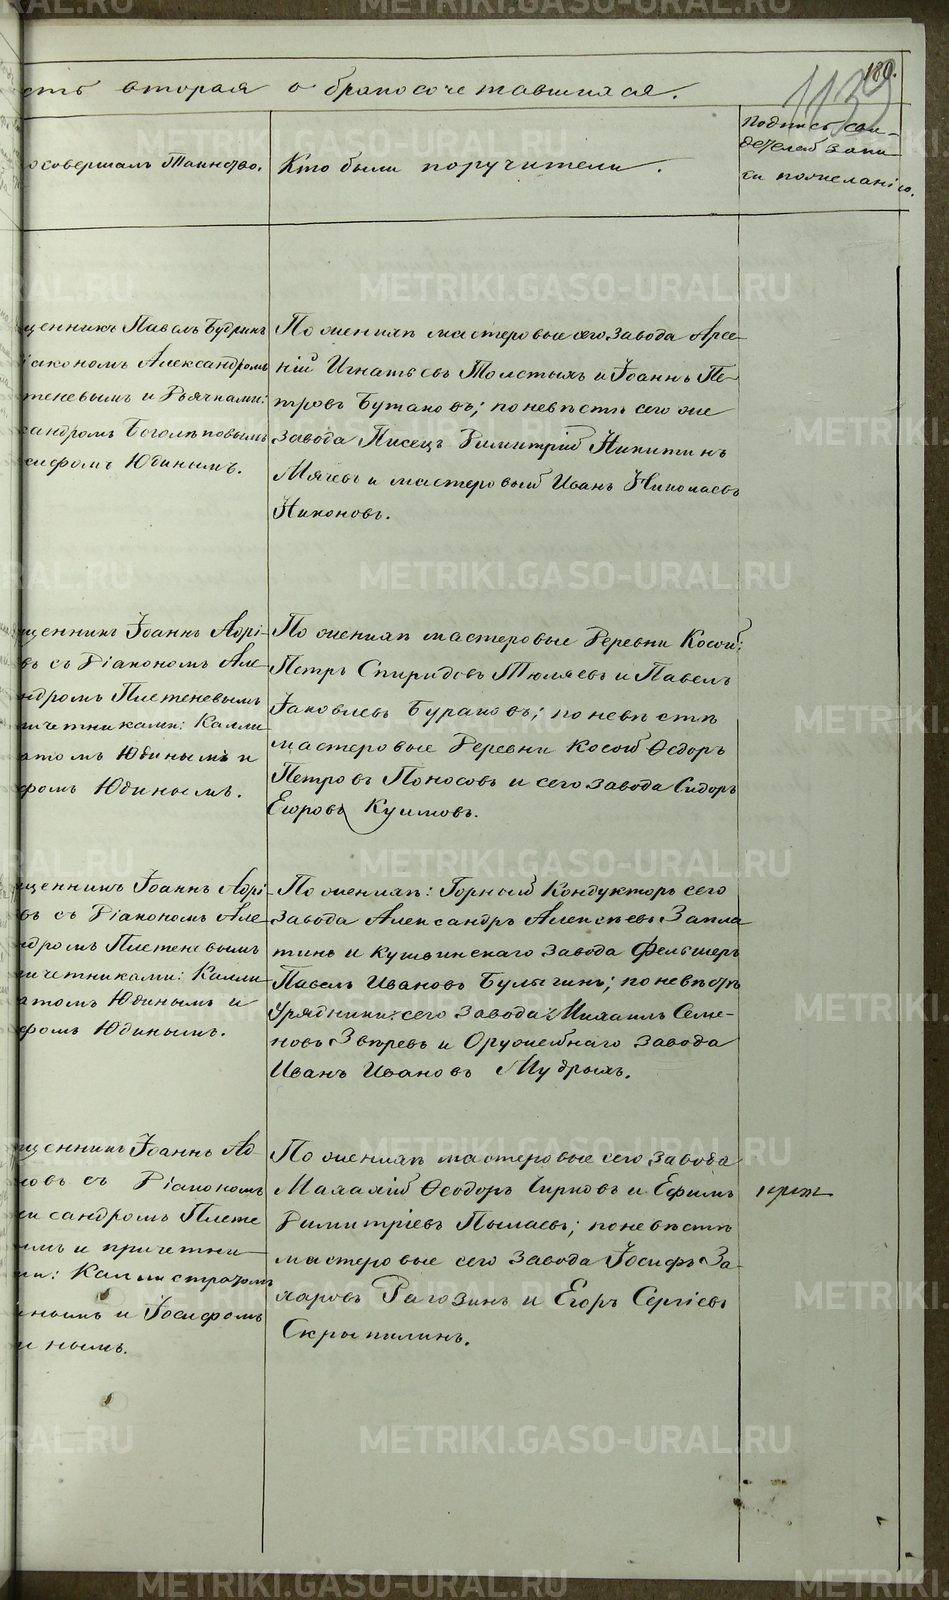 180.
1139
сть вторая о бракосочетавшихся.
о совершалъ Таинство.
Кто были поручители.
Подпись сви-
детелей запи
си по желанію.
щенникъ Павелъ Будринъ
іакономъ Александромъ
теневымъ и Дьячками:
сандромъ Боголѣповымъ
сифомъ Юдинымъ.
По женихѣ мастеровые сего завода Арсе-
ній Игнатьевъ Толстыхъ и Іоаннъ Пе-
тровъ Бутаковъ; по невѣстѣ сего же
завода Писецъ Димитрій Никитинъ
Мячевъ и мастеровый Иванъ Николаевъ
Никоновъ.
щенникъ Іоаннъ Адрі-
въ съ Діакономъ Але-
ндромъ Плетеневымъ
ичетниками: Калли
атомъ Юдинымъ и
фомъ Юдинымъ.
По женихѣ мастеровые Деревни Косой:
Петръ Спиридовъ Тюляевъ и Павелъ
Іаковлевъ Бураковъ; по невѣстѣ
мастеровые Деревни Косой Ѳедоръ
Петровъ Поносовъ и сего завода Сидоръ
Егоровъ Куимовъ.
щенникъ Іоаннъ Адрі-
въ съ Діакономъ Але-
ндромъ Плетеневымъ
ичетниками: Калли
атомъ Юдинымъ и
фомъ Юдинымъ.
По женихѣ: Горный Кондукторъ сего
завода Александръ Алексѣевъ Запла
тинъ и Кушвинскаго завода Фельшеръ
Павелъ Ивановъ Булыгинъ; по невѣстѣ
Урядники: сего завода: Михаилъ Семе-
новъ Звѣревъ и Оружейнаго завода
Иванъ Ивановъ Мудрыхъ.
щенникъ Іоаннъ Ад
новъ съ Діакономъ
ксандромъ Плете
ымъ и причетни-
ми: Каллистратомъ
инымъ и Іосифомъ
инымъ.
По женихѣ мастеровые сего завода
Малахій Ѳеодоръ Чирковъ и Ефимъ
Димитріевъ Пылаевъ; по невѣстѣ
мастеровые сего завода Іосифъ За-
харовъ Рагозинъ и Егоръ Сергіевъ
Скрыпилинъ.
METRIKI.GASO-URAL.RU